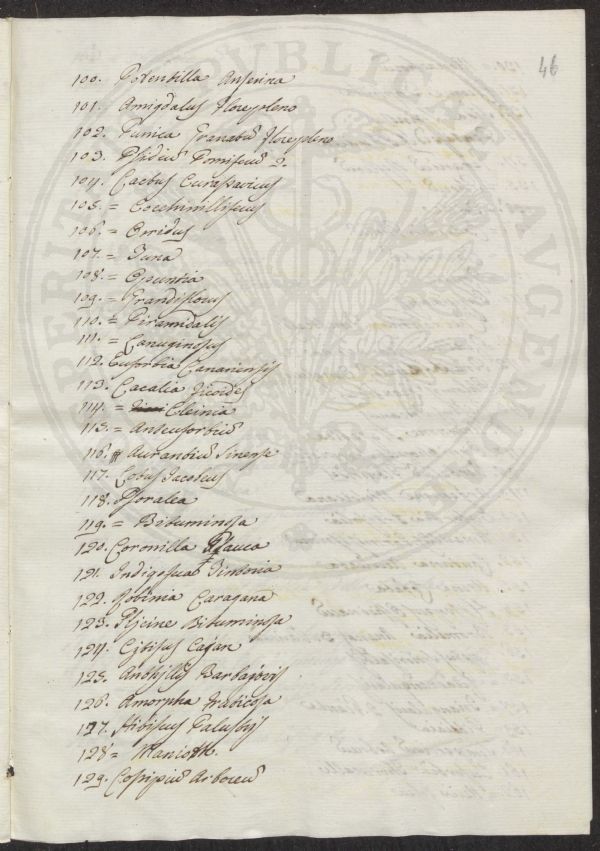 46
100. Potentilla Anserina
101. Amigdalus Florepleno
102. Punica Granatū Florepleno
103. Psidiū Pomiferū 2.
104. Cactus Curassavicus
105. = Cocchinilliferus
106. = Orridus
107. = Tuna
108. = Opuntia
109. = Grandiflorus
110. = Piramidalis
111. = Lanuginosus
112. Euforbia Canariensis
113. Cacalia Ficoides
114. = Cleinia
115. = Anteuforbiū
116. Aurantiū Sinense
117. Lotus Jacobeus
118. Psoralea
119. = Bituminosa
120. Coronilla Glauca
121. Indigofera Tintoria
122. Robinia Caragana
123. Glycine Bituminosa
124. Cytisus Cajan
125. Anthyllis Barbajovis
126. Amorpha Fruticosa
127. Hibiscus Palustris
128. = Manioth
129. Gossipiū Arboreū
PERITE REIPUBLICAE AUGENDAE